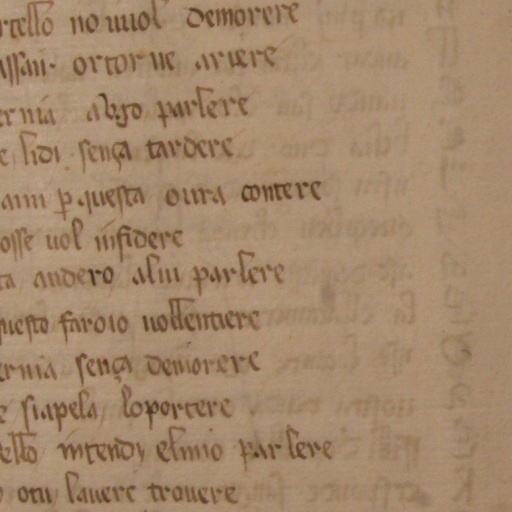 rtello no uuol demorere
assan· ortorne ariere
ernia abgo parlere
e lidi sença tardere
ami p questa oura contere
osse uol infidere
ta andero alui parlere
questo faroio uollentiere
ernia sença demorere
e siapela loportere
ello intendy elmio parlere
otu lauere trouere